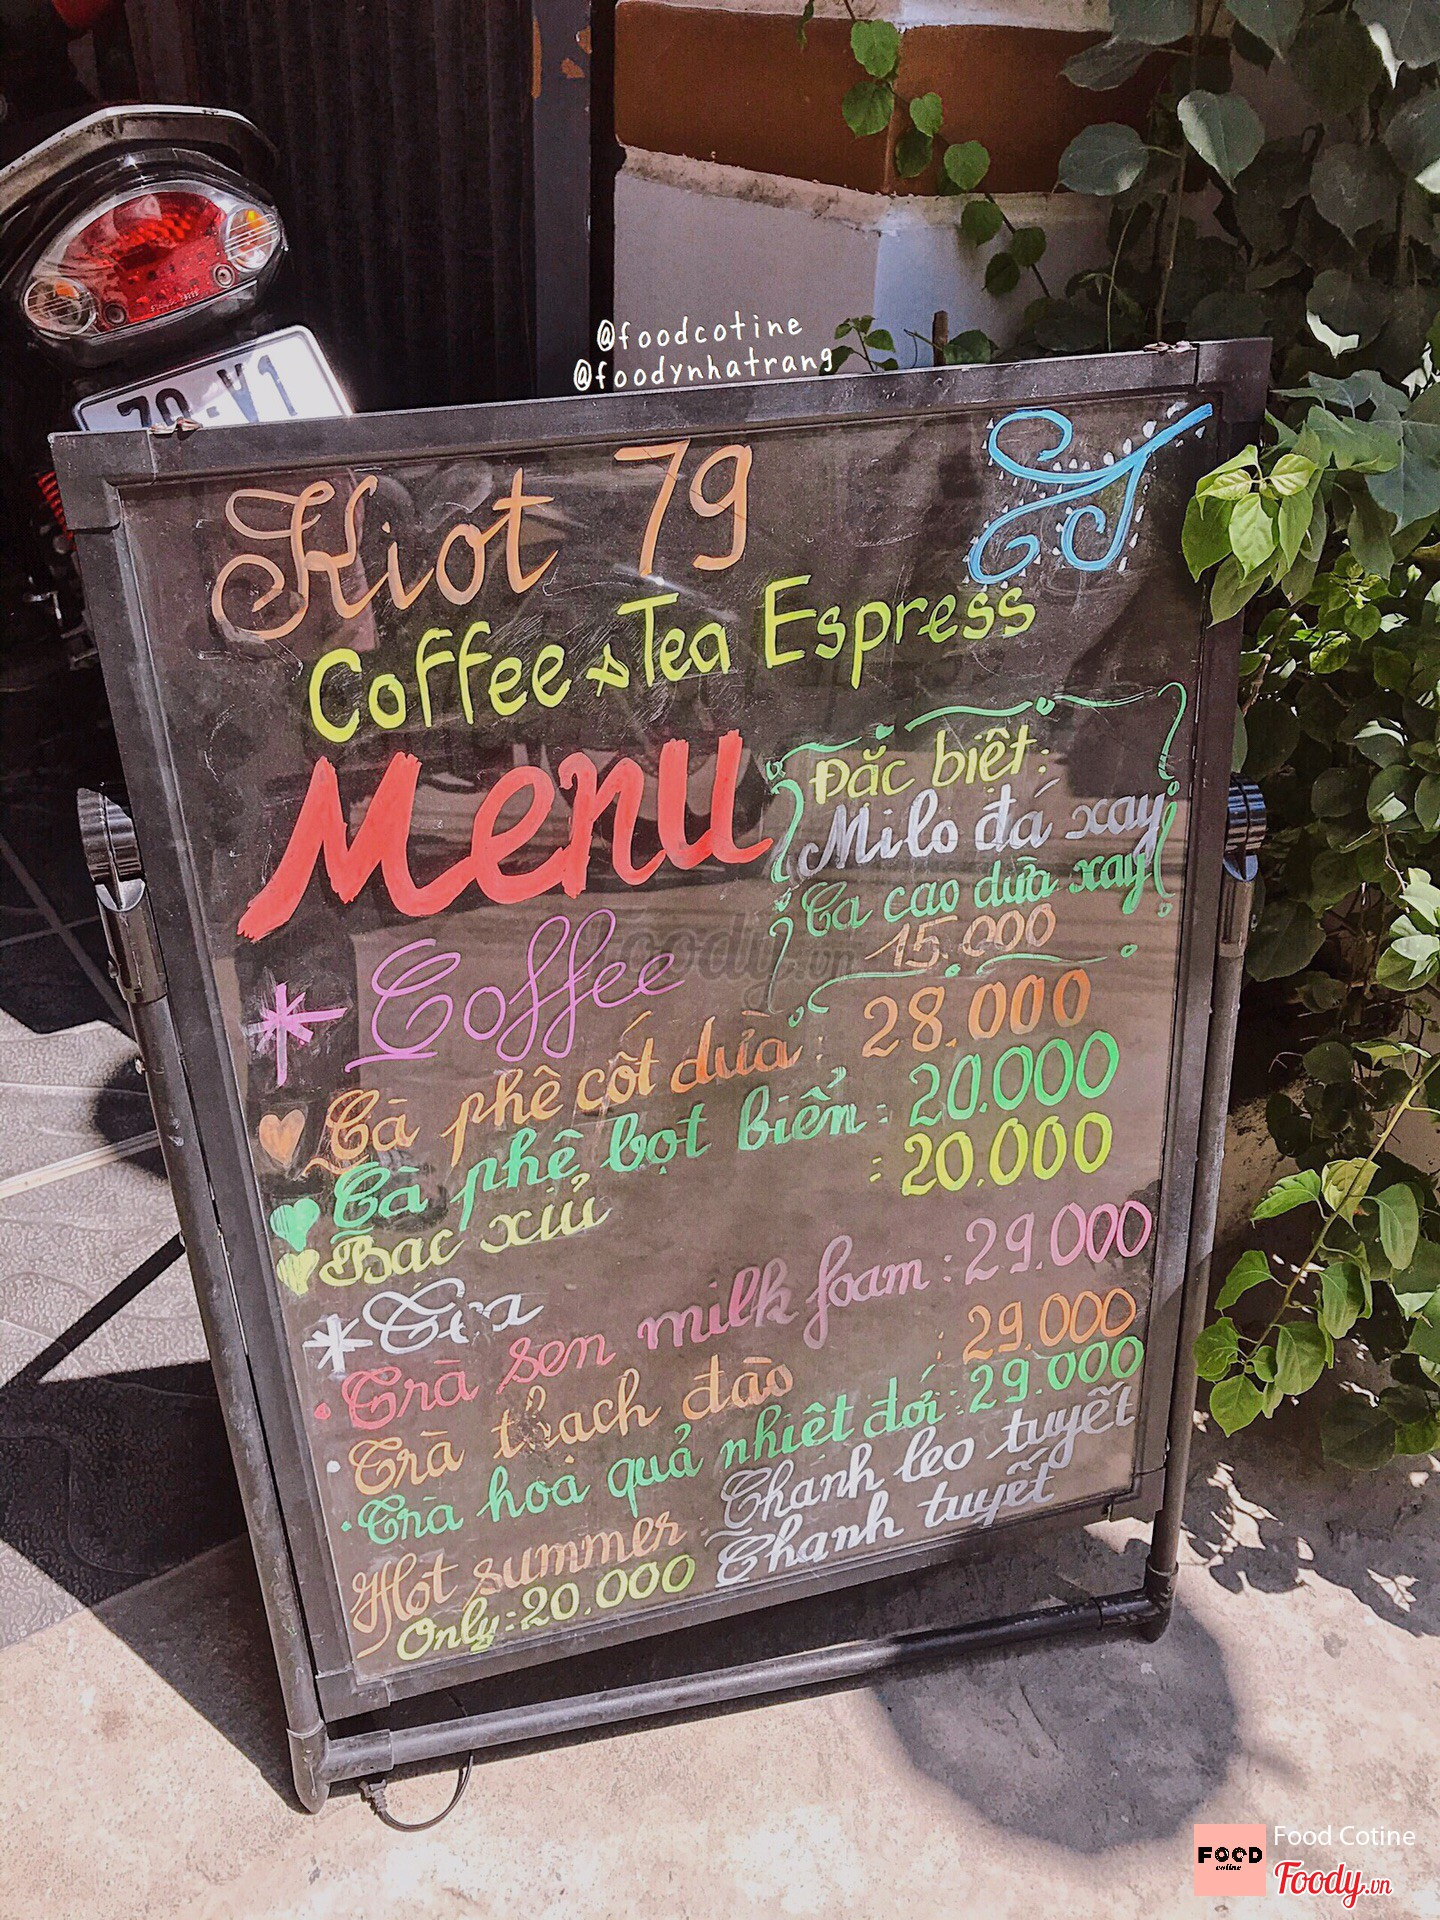 @foodcotine
@foodynhatrang
Kiot 79
Coffee & Tea Espress
Menu
Đặc biệt:
Milo đá xay
Ca cao dừa xay
15.000
* Coffee
Cà phê cốt dừa : 28.000
Cà phê bọt biển : 20.000
Bạc xiủ : 20.000
* Tea
Trà sen milk foam : 29.000
Trà thạch đào : 29.000
Trà hoa quả nhiệt đới : 29.000
Hot summer Chanh leo tuyết
Only : 20.000 Chanh tuyết
FOOD
cotine
Food Cotine
Foody.vn